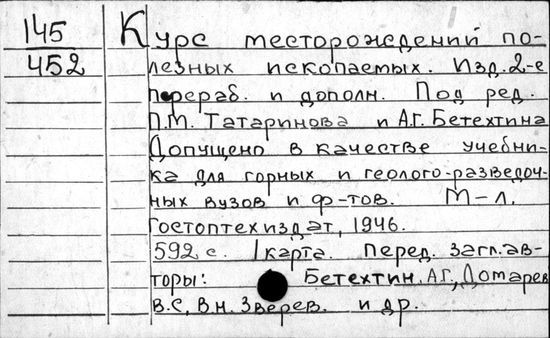 145
452
Курс месторождений по-
лезных ископаемых. Изд. 2-е
перераб. и дополн. Под ред.
П.М. Татаринова и А.Г. Бетехтина
Допущено в качестве учебни-
ка для горных и геолого-разведоч-
ных вузов и ф-тов. М-л.
Гостоптехиздат, 1946.
592 с. 1 карта. Перед. загл. ав-
торы: Бетехтин. А.Г., Домарев
В.С, В.Н. Зверев. и др.